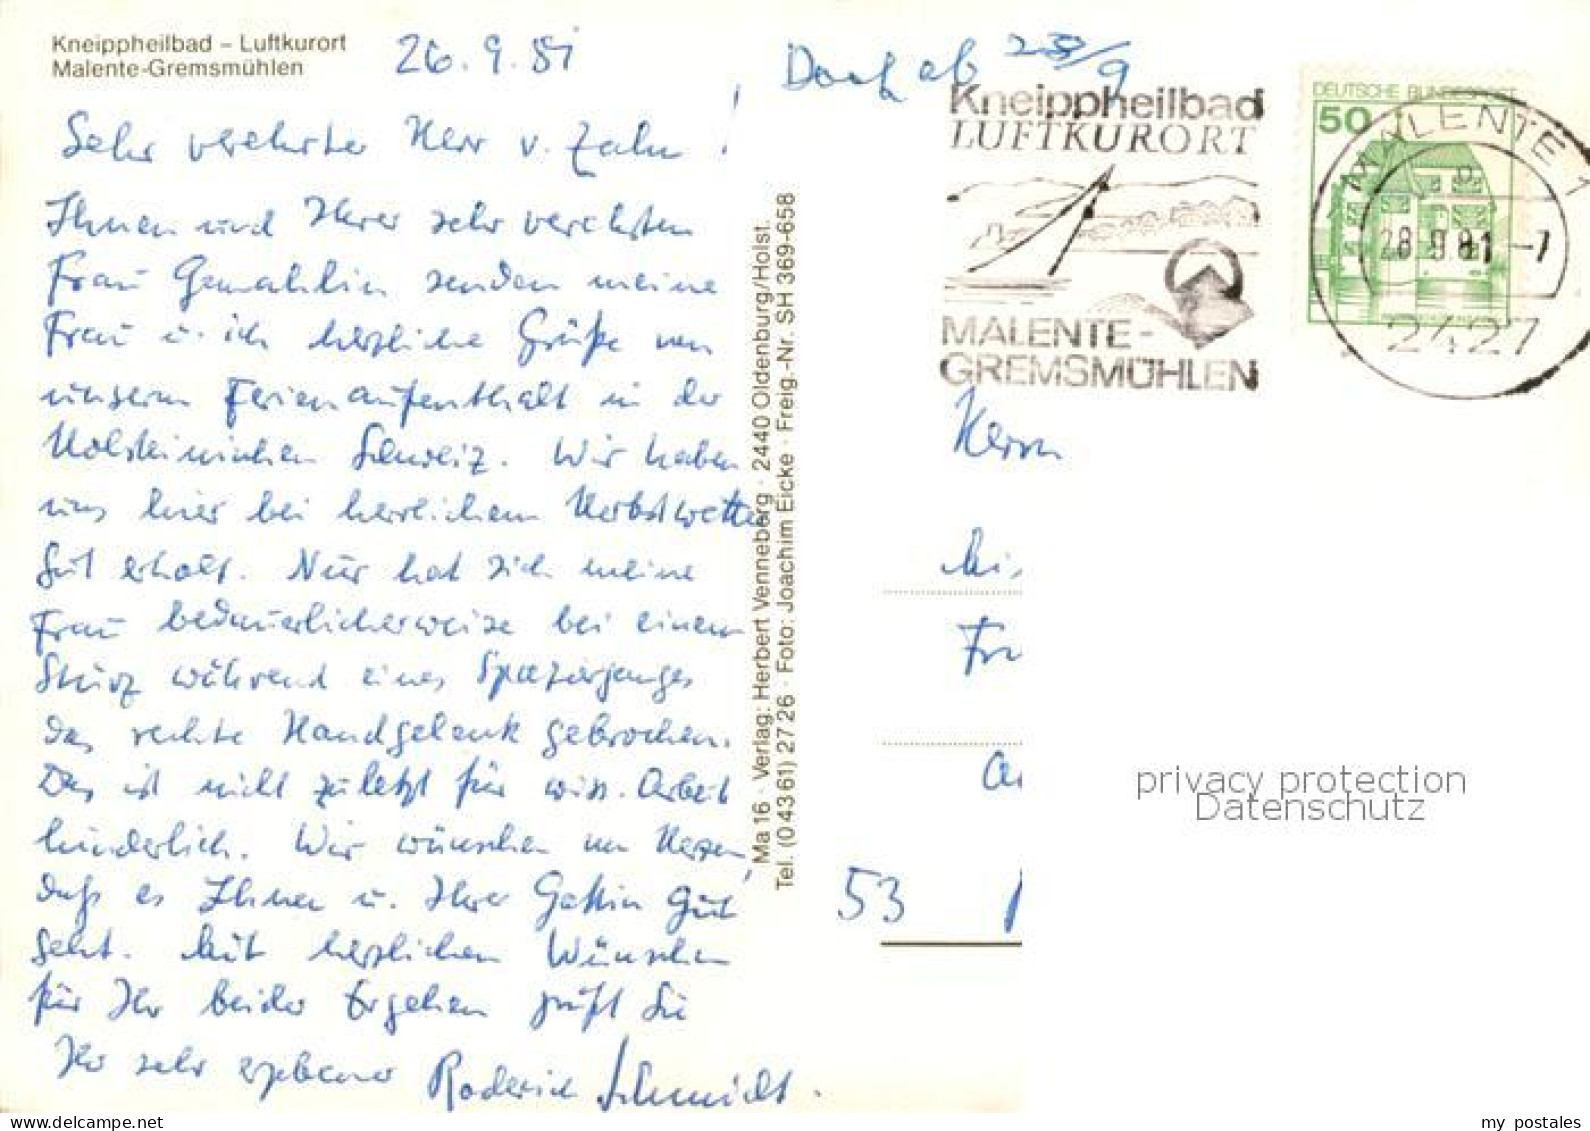 Kneippheilbad – Luftkurort
Malente-Gremsmühlen
26.9.81
Sehr verehrter Herr v. Zahn!
Ihnen und Ihrer sehr verehrten
Frau Gemahlin senden meine
Frau u. ich herzliche Grüße von
unserem Ferienaufenthalt in der
Holsteinischen Schweiz. Wir haben
uns hier bei herrlichem Herbstwetter
gut erholt. Nur hat sich meine
Frau bedauerlicherweise bei einem
Sturz während eines Spazierganges
das rechte Handgelenk gebrochen.
Das ist nicht zuletzt für wiss. Arbeit
hinderlich. Wir wünschen von Herzen,
daß es Ihnen u. Ihrer Gattin gut
geht. Mit herzlichen Wünschen
für Ihr beider Ergehen grüßt Sie
Ihr sehr ergebener Roderich Schmidt.
Ma 16 · Verlag: Herbert Venneberg · 2440 Oldenburg/Holst.
Tel. (04361) 2726 · Foto: Joachim Eicke · Freig.-Nr. SH 369-658
ab
Kneippheilbad
LUFTKURORT
MALENTE-
GREMSMÜHLEN
DEUTSCHE BUNDESPOST
50
MALENTE 1
28.9.81-7
2427
Herrn
53
privacy protection
Datenschutz
my postales